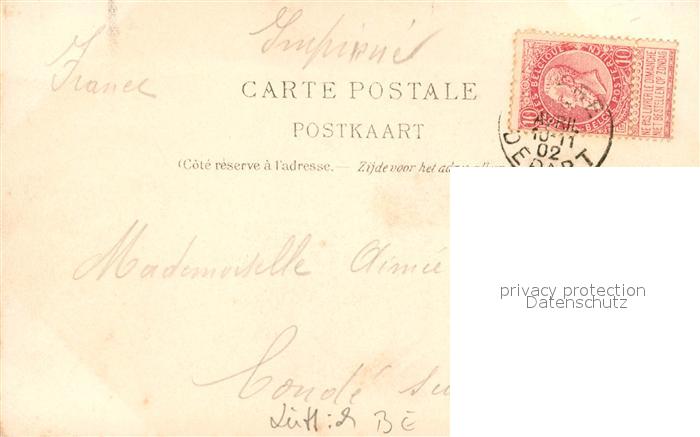 Imprimé
France
CARTE POSTALE
POSTKAART
(Côté réserve à l'adresse. — Zijde voor het
BELGIQUE
10 10
NE PAS LIVRER LE DIMANCHE
NIET BESTELLEN OP ZONDAG
AVRIL
10-11
02
DEPART
privacy protection
Datenschutz
Mademoiselle Aimée
Condé su
BE